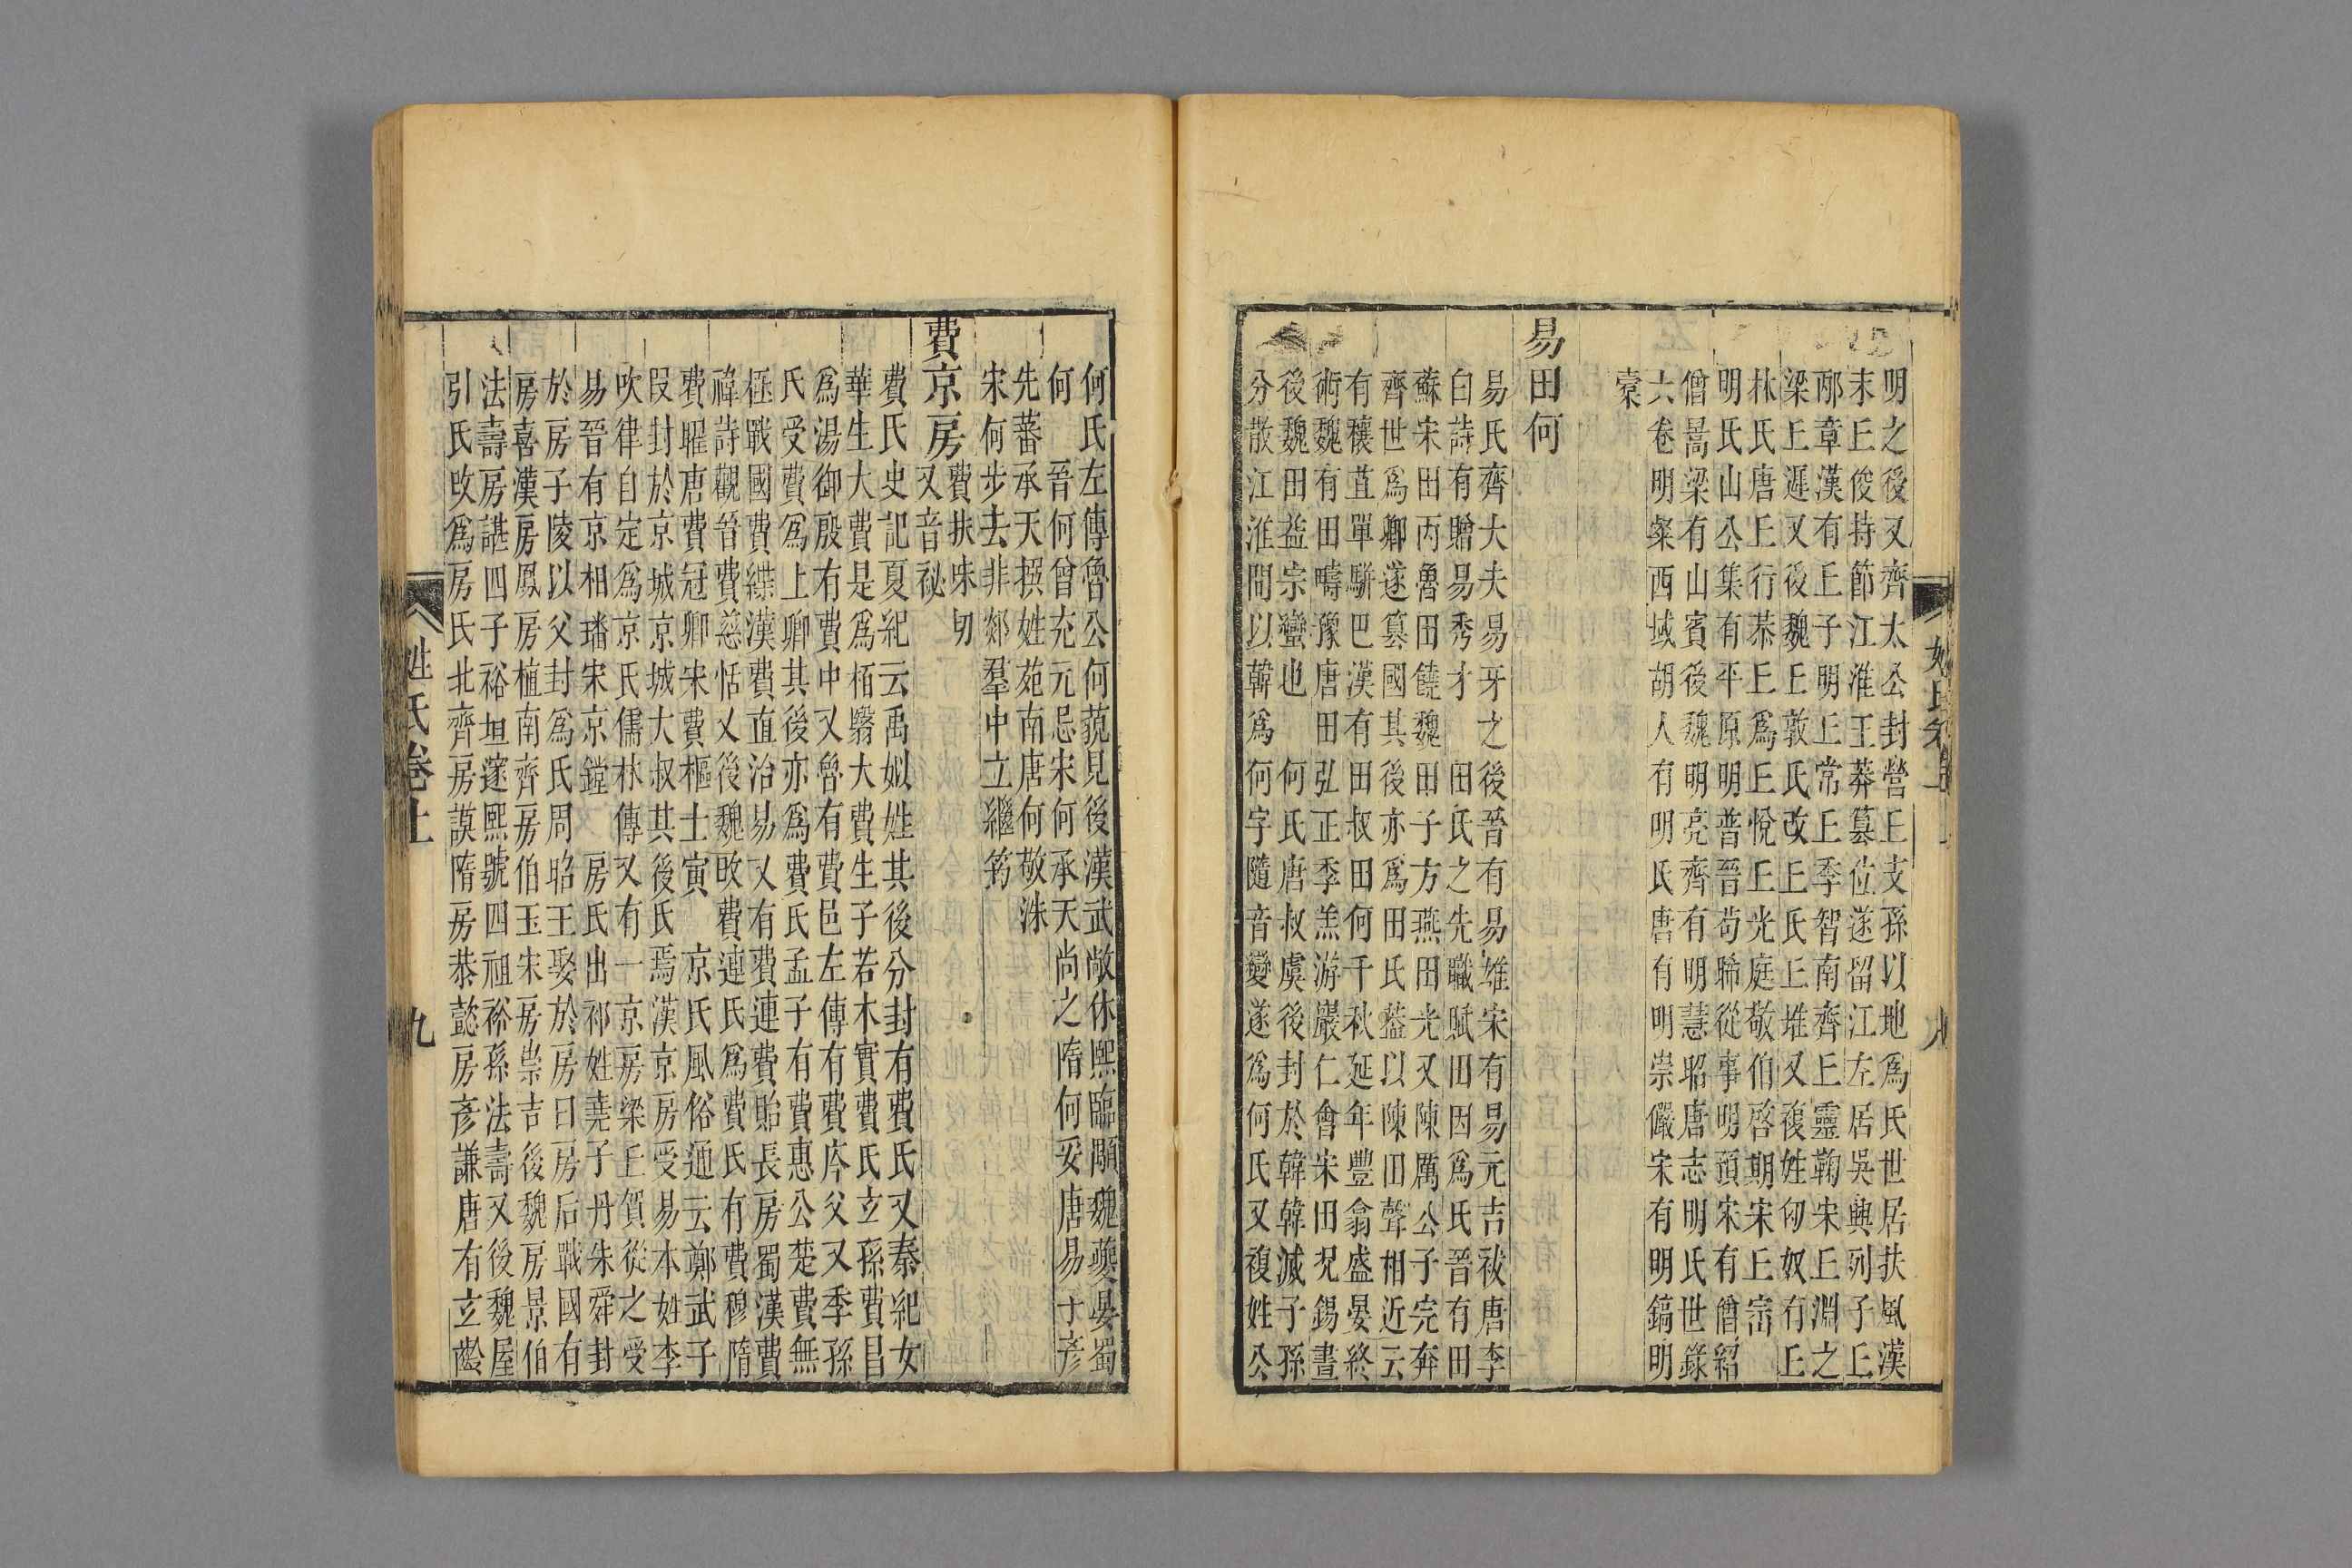 明之後又齊太公封營丘支孫以地爲氏世居扶風漢
末丘俊持節江淮王莽篡位遂留江左居吳興列子丘
邴章漢有丘子明丘常丘季智南齊丘靈鞠宋丘淵之
梁丘遲又後魏丘敦氏改丘氏丘堆又複姓匈奴有丘
林氏唐丘行恭丘爲丘悅丘光庭敬伯啓期宋丘崈
明氏山公集有平原明普晉荀晞從事明預宋有僧紹
僧暠梁有山賓後魏明亮齊有明慧昭唐志明氏世錄
六卷明粲西域胡人有明氏唐有明崇儼宋有明鎬明
橐
易田何
易氏齊大夫易牙之後晉有易雄宋有易元吉祓唐李
白詩有贈易秀才 田氏之先職賦田因爲氏晉有田
蘇宋田丙魯田饒魏田子方燕田光又陳厲公子完奔
齊世爲卿遂篡國其後亦爲田氏葢以陳田聲相近云
有穰苴單駢巴漢有田叔田何千秋延年豐翕盛晏終
術魏有田疇豫唐田弘正季羔游巖仁會宋田况錫晝
後魏田益宗蠻也 何氏唐叔虞後封於韓韓滅子孫
分散江淮間以韓爲何字隨音變遂爲何氏又複姓公
姓氏卷上 八
何氏左傳魯公何蒍見後漢武敞休熙臨顒魏夔晏蜀
何 晉何曾充元忌宋何承天尚之隋何妥唐易于彥
先蕃承天撰姓苑南唐何敬洙
宋何步去非郯羣中立繼筠
費京房 費扶味切
又音祕
費氏史記夏紀云禹姒姓其後分封有費氏又秦紀女
華生大費是爲栢翳大費生子若木實費氏立孫費昌
爲湯御殷有費中又魯有費邑左傳有費庈父又季孫
氏受費爲上卿其後亦爲費氏孟子有費惠公楚費無
極戰國費緤漢費直治易又有費連費貽長房蜀漢費
禕詩觀晉費慈恬又後魏改費連氏爲費氏有費穆隋
費曜唐費冠卿宋費樞士寅 京氏風俗通云鄭武子
段封於京城京城大叔其後氏焉漢京房受易本姓李
吹律自定爲京氏儒林傳又有一京房梁丘賀從之受
易晉有京相璠宋京鏜 房氏出祁姓堯子丹朱舜封
於房子陵以父封爲氏周昭王娶於房曰房后戰國有
房喜漢房鳳房植南齊房伯玉宋房崇吉後魏房景伯
法壽房諶四子裕坦邃熙號四祖裕孫法壽又後魏屋
引氏改爲房氏北齊房謨隋房恭懿房彥謙唐有玄齡
姓氏卷上 九